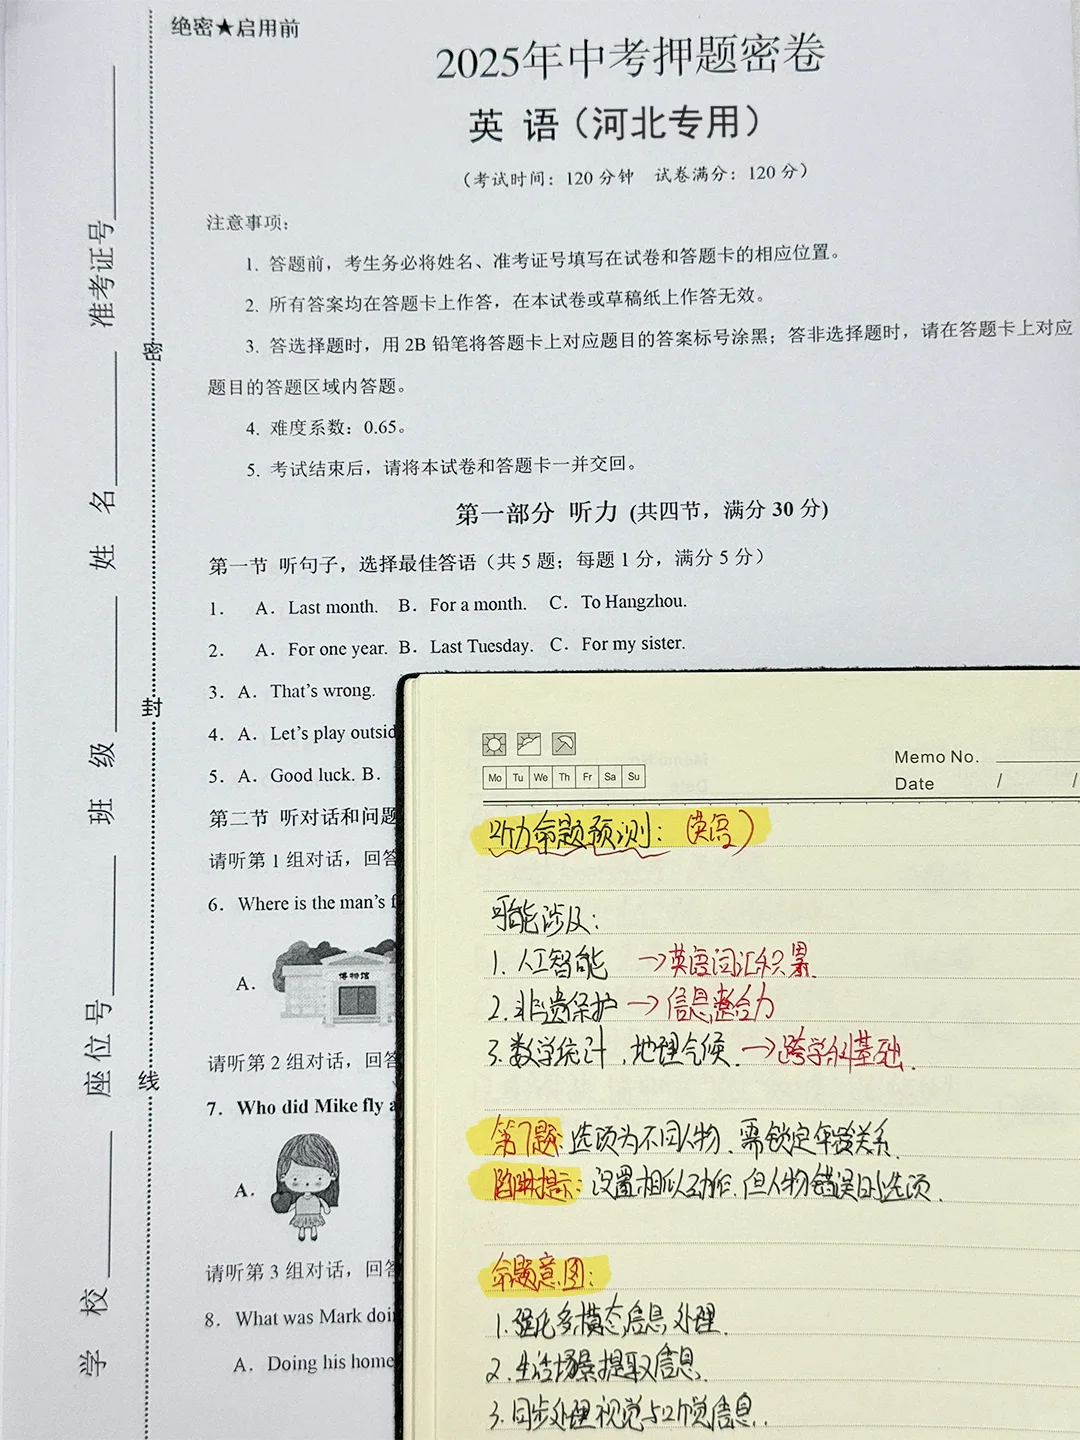 绝密★启用前
2025年中考押题密卷
英 语（河北专用）
（考试时间：120 分钟 试卷满分：120 分）
注意事项：
1. 答题前，考生务必将姓名、准考证号填写在试卷和答题卡的相应位置。
2. 所有答案均在答题卡上作答，在本试卷或草稿纸上作答无效。
3. 答选择题时，用 2B 铅笔将答题卡上对应题目的答案标号涂黑；答非选择题时，请在答题卡上对应
题目的答题区域内答题。
4. 难度系数：0.65。
5. 考试结束后，请将本试卷和答题卡一并交回。
第一部分 听力 (共四节，满分 30 分)
第一节 听句子，选择最佳答语（共 5 题；每题 1 分，满分 5 分）
1. A．Last month. B．For a month. C．To Hangzhou.
2. A．For one year. B．Last Tuesday. C．For my sister.
3. A．That's wrong.
4. A．Let's play outsid
5. A．Good luck. B．
第二节 听对话和问题
请听第 1 组对话，回答
6. Where is the man's f
博物馆
A．
请听第 2 组对话，回答
7. Who did Mike fly a
A．
请听第 3 组对话，回答
8. What was Mark doi
A．Doing his home
学 校
座位号
班 级
姓 名
准考证号
密
封
线
Memo No.
Mo Tu We Th Fr Sa Su
Date / /
听力命题预测：(英语)
可能涉及：
1. 人工智能 →英语词汇积累
2. 非遗保护 →信息整合力
3. 数学统计，地理气候. →跨学科基础.
第7题：选项为不同人物，需锁定年龄关系.
陷阱提示：设置相似动作，但人物错误的选项.
命题意图：
1. 强化多模态信息处理.
2. 生活场景提取信息.
3. 同步处理视觉与听觉信息..